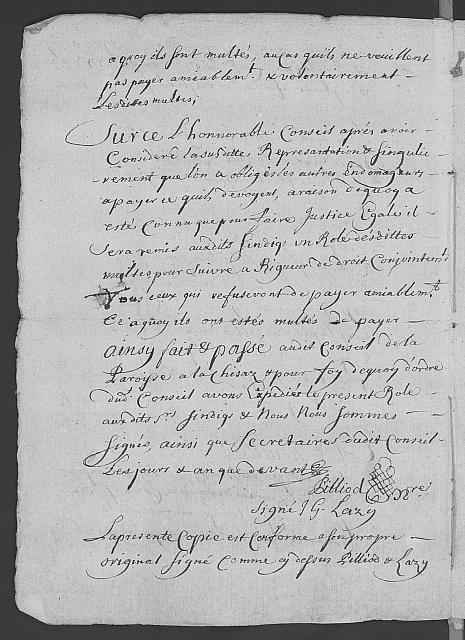 a quoy ils sont multés, au cas quils ne veuillent
pas payer amiablemt. & volontairement
Lesdittes multes,
Sur ce L'honnorable Conseil aprés avoir
Consideré La susditte Representation & singulie-
rement que lon a obligé les autres Endomageurs
a payer ce quils devoyent, a raison dequoy a
esté Connu que pour faire Justice Egale il
sera remis auxdits sindigs un Role desdittes
multes pour suivre a Rigueur de droit Conjointemt.
Tous ceux qui refuseront de payer amiablemt.
Ce a quoy ils ont estés multés de payer
ainsy fait & passé audit Conseil de la
Paroisse a la Chisaz & pour foy dequoy d'ordre
dudt. Conseil avons Expedié le present Role
auxdits srs. sindigs & Nous Nous sommes
signés, ainsi que secretaires dudit Conseil
Les jours & an que devant
Pilliod
signé J G. Lazy
La presente Copie est Conforme a son propre
original signé Comme cy dessus Pilliod & Lazy